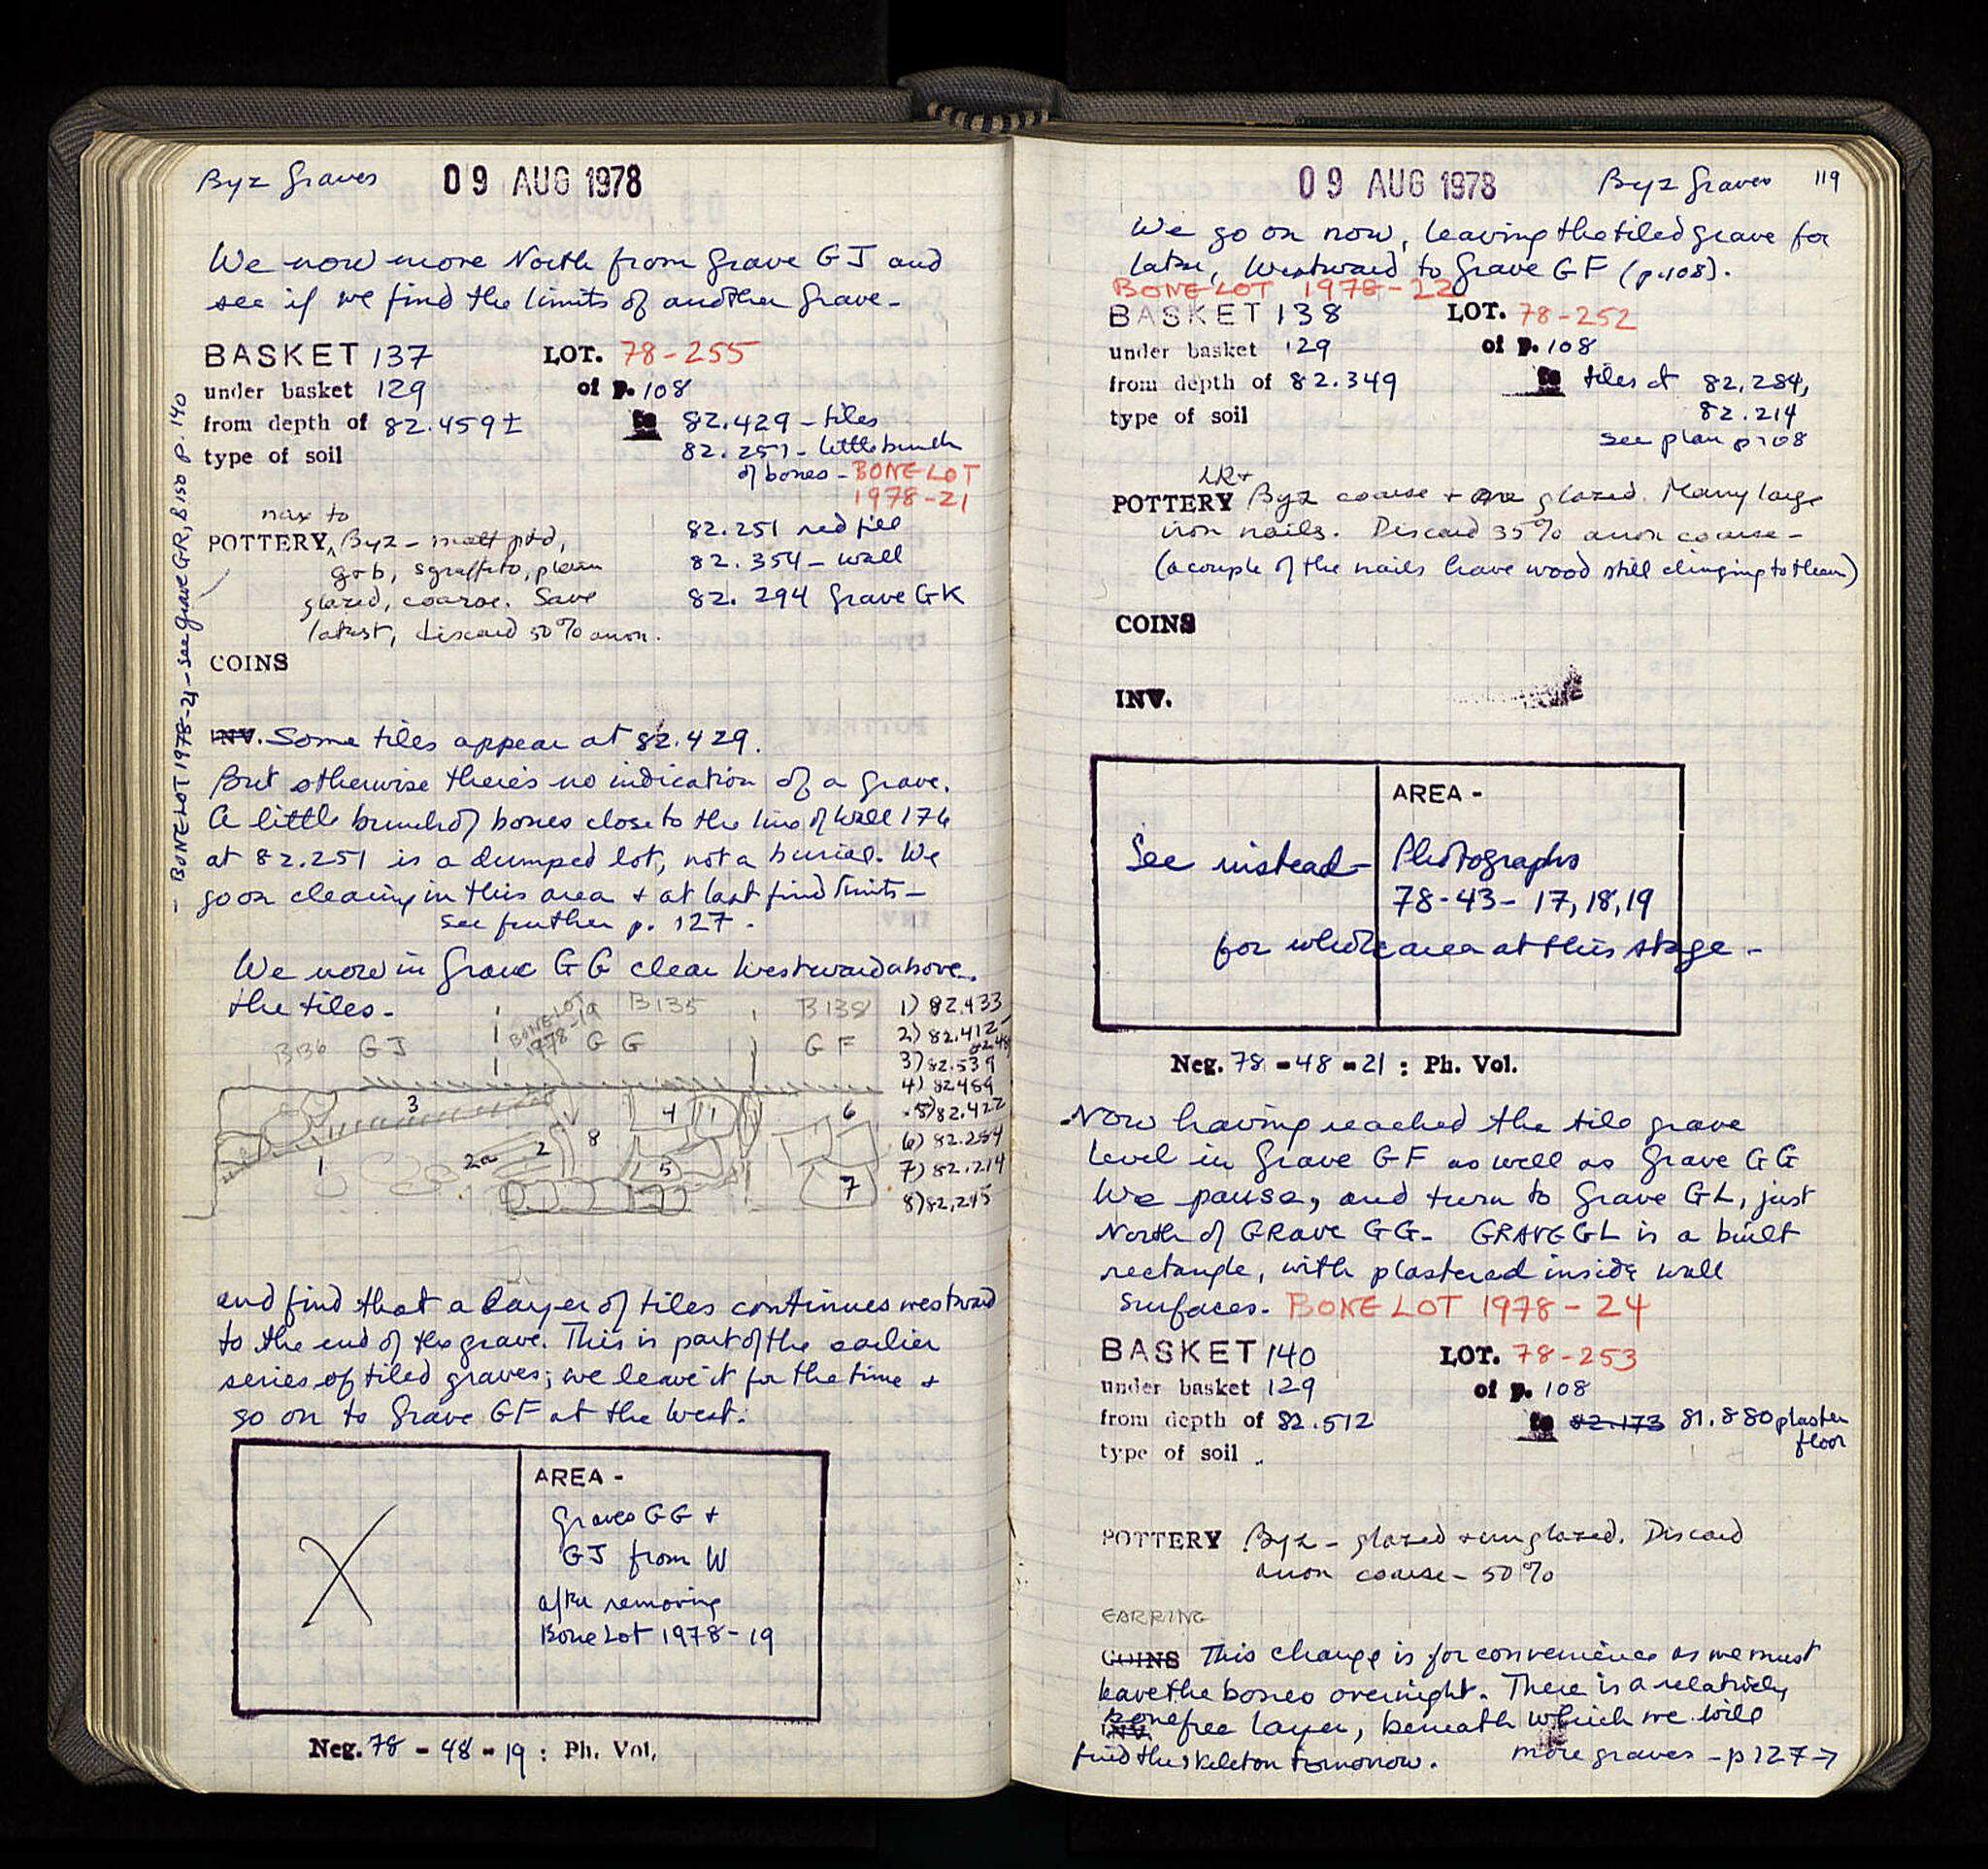 Byz Graves 09 AUG 1978
We now move North from Grave GJ and
see if we find the limits of another Grave-
BASKET 137 LOT. 78-255
under basket 129 of p. 108
from depth of 82.459± to 82.429 - tiles
type of soil 82.251 - little bunch
of bones - BONE LOT
1978-21
82.251 red fill
82.354 - wall
82.294 Grave GK
mix to
POTTERY Byz - matt ptd,
g+b, sgraffito, plain
glazed, coarse. Save
latest, discard 50% anon.
COINS
INV. Some tiles appear at 82.429.
But otherwise there's no indication of a grave.
A little bunch of bones close to the line of Wall 174
at 82.251 is a dumped lot, not a burial. We
go on clearing in this area + at last find limits-
see further p. 127.
- BONE LOT 1978-21 - see grave GR, B150 p. 140
We now in Grave GG clear Westward above
the tiles-
B136 GJ
BONE LOT
1978-19
B135
GG
B138
GF
1) 82.433
2) 82.412-
3) 82.539
4) 82489
5) 82.422
6) 82.284
7) 82.214
8) 82,245
3 4 1 6
1 2a 2 8 5 7
and find that a layer of tiles continues westward
to the end of the grave. This is part of the earlier
series of tiled graves; we leave it for the time +
go on to Grave GF at the West.
AREA -
Graves GG +
GJ from W
after removing
Bone Lot 1978-19
Neg. 78 - 48 - 19 : Ph. Vol.
09 AUG 1978 Byz Graves 119
We go on now, leaving the tiled grave for
later, Westward to Grave GF (p.108).
BONE LOT 1978-22
BASKET 138 LOT. 78-252
under basket 129 of p. 108
from depth of 82.349 to tiles at 82.284,
type of soil 82.214
see plan p 108
LR+
POTTERY Byz coarse + glazed. Many large
iron nails. Discard 35% anon coarse-
(a couple of the nails have wood still clinging to them)
COINS
INV.
AREA -
See instead- Photographs
78-43- 17,18,19
for whole area at this stage-
Neg. 78 - 48 - 21 : Ph. Vol.
Now having reached the tile grave
level in Grave GF as well as Grave GG
We pause, and turn to Grave GL, just
North of GRave GG- GRAVE GL is a built
rectangle, with plastered inside wall
surfaces- BONE LOT 1978-24
BASKET 140 LOT. 78-253
under basket 129 of p. 108
from depth of 82.512 to 82.173 81.880 plaster
floor
type of soil
POTTERY Byz - glazed + unglazed. Discard
anon coarse - 50%
EARRING
COINS This change is for convenience as we must
leave the bones overnight. There is a relatively
INV. bone free layer, beneath which we will
find the skeleton tomorrow. more graves - p 127→